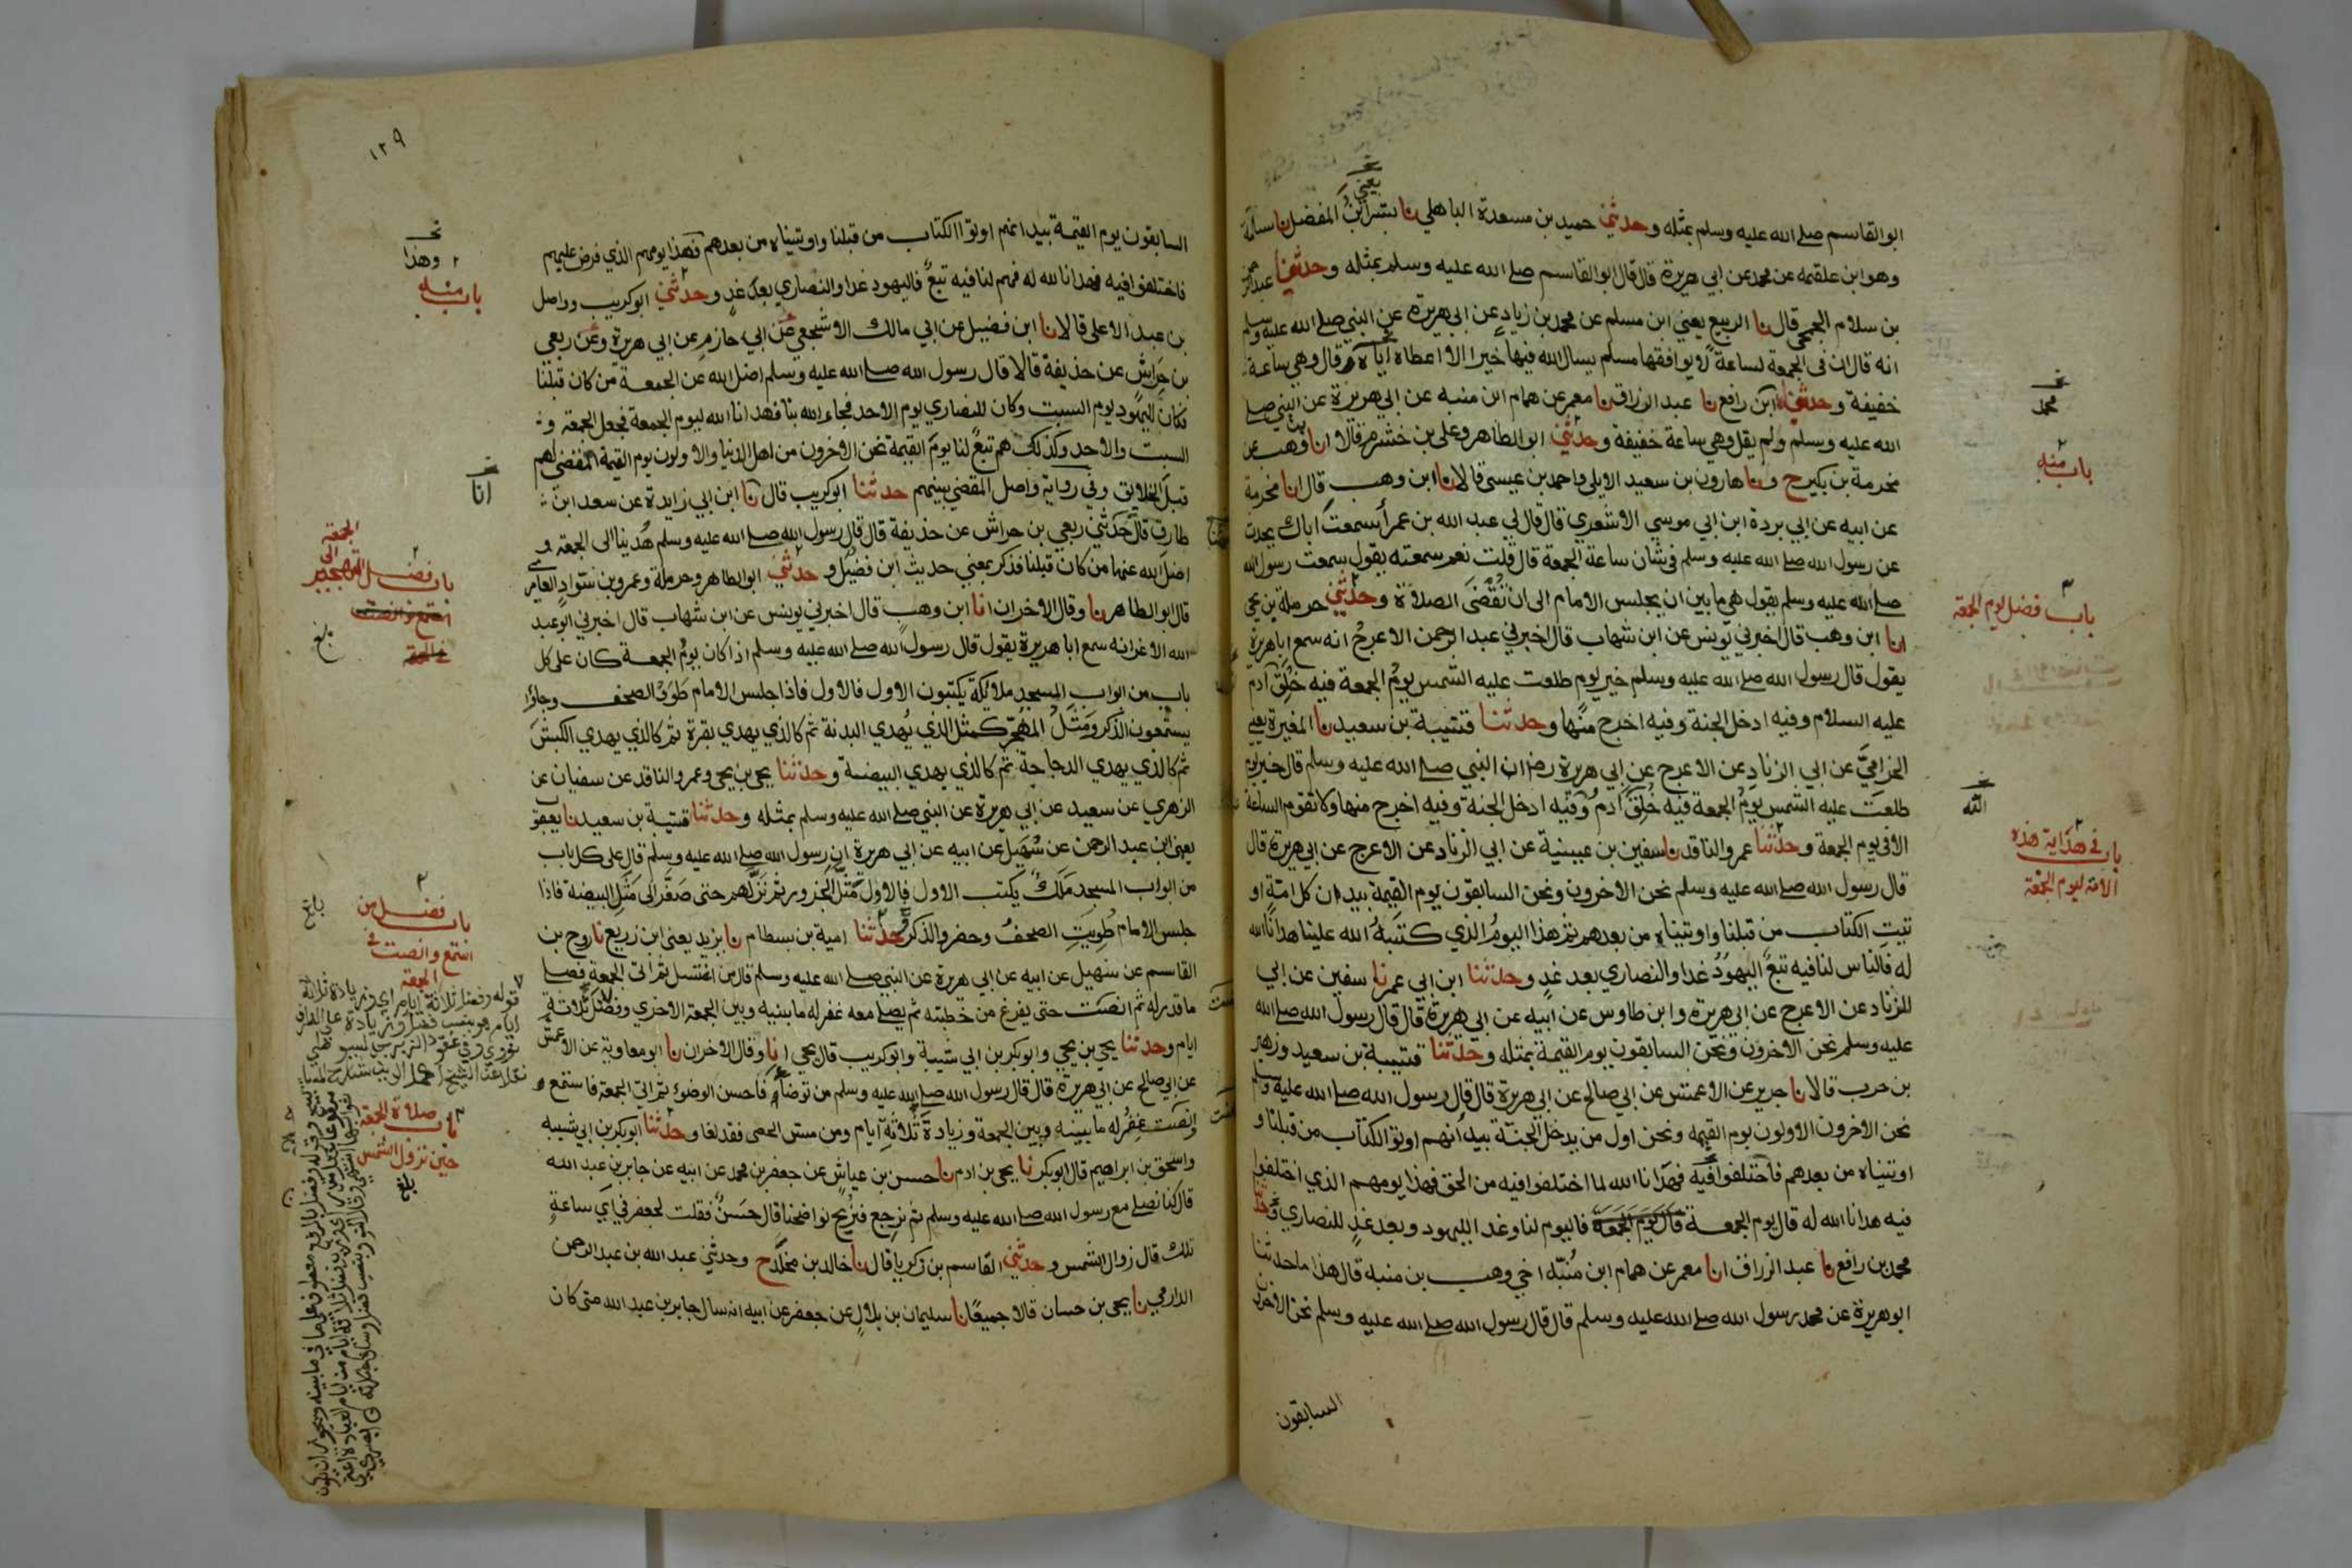 ابو القاسم صلى الله عليه وسلم بمثله وحدثني حميد بن مسعدة الباهلي نا بشر ابن المفضل نا سلمة
وهو ابن علقمه عن محمد عن ابي هريرة قال قال ابو القاسم صلى الله عليه وسلم بمثله وحدثنا عبد الرحمن
بن سلام الجمحي قال نا الربيع يعني ابن مسلم عن محمد بن زياد عن ابي هريرة عن النبي صلى الله عليه وسلم
انه قال ان في الجمعة لساعة لا يوافقها مسلم يسال الله فيها خيرا الا اعطاه اياه قال وهي ساعة
خفيفة وحدثناه ابن رافع نا عبد الرزاق نا معمر عن همام ابن منبه عن ابي هريرة عن النبي صلى
الله عليه وسلم ولم يقل وهي ساعة خفيفة وحدثني ابو الطاهر وعلي بن خشرم قالا انا وهب عن
مخرمة بن بكير ح ونا هارون بن سعيد الايلي واحمد بن عيسى قالا نا ابن وهب قال انا مخرمة
عن ابيه عن ابي بردة ابن ابي موسي الاشعري قال قال لي عبد الله بن عمر أسمعت اباك يحدث
عن رسول الله صلى الله عليه وسلم في شان ساعة الجمعة قال قلت نعم سمعته يقول سمعت رسول الله
صلى الله عليه وسلم يقول هي ما بين ان يجلس الامام الى ان تُقضَى الصلاة وحدثني حرملة بن يحيى
انا ابن وهب قال اخبرني يونس عن ابن شهاب قال اخبرني عبد الرحمن الاعرج انه سمع ابا هريرة
يقول قال رسول الله صلى الله عليه وسلم خير يوم طلعت عليه الشمس يوم الجمعة فيه خُلِقَ آدم
عليه السلام وفيه ادخل الجنة وفيه اخرج منها وحدثنا قتيبة بن سعيد نا المغيرة يعني
الحزاميَّ عن ابي الزناد عن الاعرج عن ابي هريرة رض ان النبي صلى الله عليه وسلم قال خير يوم
طلعت عليه الشمس يومُ الجمعة فيه خُلِقَ آدمُ وفيه ادخل الجنة وفيه اخرج منها ولا تقوم الساعة
الا في يوم الجمعة وحدثنا عمرو الناقد نا سفين بن عيينة عن ابي الزناد عن الاعرج عن ابي هريرة قال
قال رسول الله صلى الله عليه وسلم نحن الاخرون ونحن السابقون يوم القيمة بيد ان كل امة او
تيتِ الكتاب من قبلنا واوتيناه من بعدهم ثم هذا اليومُ الذي كتبهُ الله علينا هدانا الله
له فالناس لنا فيه تبعٌ اليهودُ غدا والنصاري بعد غدٍ وحدثنا ابن ابي عمر نا سفين عن ابي
الزناد عن الاعرج عن ابي هريرة وابن طاوس عن ابيه عن ابي هريرة قال قال رسول الله صلى الله
عليه وسلم نحن الاخرون ونحن السابقون يوم القيمة بمثله وحدثنا قتيبة بن سعيد وزهير
بن حرب قالا نا جرير عن الاعمش عن ابي صالح عن ابي هريرة قال قال رسول الله صلى الله عليه وسلم
نحن الاخرون الاولون يوم القيمه ونحن اول من يدخل الجنة بيد انهم اوتوا الكتاب من قبلنا و
اوتيناه من بعدهم فاختلفوا فيه فهدانا الله لما اختلفوا فيه من الحق فهذا يومهم الذي اختلفوا
فيه هدانا الله له قال يوم الجمعة قال يوم الجمعة فاليوم لنا وغدا لليهود وبعد غدٍ للنصاري وحد
محمد بن رافع نا عبد الرزاق انا معمر عن همام ابن مُنبّه اخي وهب بن منبه قال هذا ما حدثنا
ابو هريرة عن محمد رسول الله صلى الله عليه وسلم قال قال رسول الله صلى الله عليه وسلم نحن الاخرون
السابقون
يعني
محمد
باب منه
باب فضل يوم الجمعة
باب في هداية هذه
الامة ليوم الجمعة
١٢٩
السابقون يوم القيمة بيد انهم اوتوا الكتاب من قبلنا واوتيناه من بعدهم فهذا يومهم الذي فرض عليهم
فاختلفوا فيه فهدانا الله له فهم لنا فيه تبعٌ فاليهود غدا والنصاري بعد غدٍ وحدثني ابو كريب وواصل
بن عبد الاعلى قالا نا ابن فضيل عن ابي مالك الاشجعي عن ابي حازم عن ابي هريرة وعن ربعي
بن حِراش عن حذيفة قالا قال رسول الله صلى الله عليه وسلم اضل الله عن الجمعة من كان قبلنا
فكان لليهود يوم السبت وكان للنصاري يوم الاحد فجاء الله بنا فهدانا الله ليوم الجمعة فجعل الجمعة و
السبت والاحد وكذلك هم تبعٌ لنا يوم القيمة نحن الاخرون من اهل الدنيا والاولون يوم القيمة المقضى لهم
قبل الخلايق وفي رواية واصل المقضي بينهم حدثنا ابو كريب قال نا ابن ابي زايدة عن سعد ابن
طارق قال حدثني ربعي بن حراش عن حذيفة قال قال رسول الله صلى الله عليه وسلم هُدينا الى الجمعة و
اضل الله عنها من كان قبلنا فذكر بمعني حديث ابن فضيل وحدثني ابو الطاهر وحرملة وعمرو بن سوّاد العامري
قال ابو الطاهر نا وقال الاخران انا ابن وهب قال اخبرني يونس عن ابن شهاب قال اخبرني ابو عبد
الله الاغر انه سمع ابا هريرة يقول قال رسول الله صلى الله عليه وسلم اذا كان يوم الجمعة كان على كل
باب من ابواب المسجد ملائكة يكتبون الاول فالاول فاذا جلس الامام طَوَوُا الصحف وجاؤا
يستمعون الذكر ومَثَلُ المُهَجِّر كمثل الذي يُهدي البدنة ثم كالذي يهدي بقرة ثم كالذي يهدي الكبش
ثم كالذي يهدي الدجاجة ثم كالذي يهدي البيضة وحدثنا يحيى بن يحيى وعمرو الناقد عن سفيان عن
الزهري عن سعيد عن ابي هريرة عن النبي صلى الله عليه وسلم بمثله وحدثنا قتيبة بن سعيد نا يعقوب
يعني ابن عبد الرحمن عن سُهَيل عن ابيه عن ابي هريرة ان رسول الله صلى الله عليه وسلم قال على كل باب
من ابواب المسجد مَلَكٌ يكتب الاول فالاول مَثَّلَ الجزور ثم نزّلهم حتى صغّر الى مَثَلِ البيضة فاذا
جلس الامام طُوِيَتِ الصحفُ وحضروا الذكر وحدثنا امية بن بسطام نا يزيد يعني ابن زريع نا روح بن
القاسم عن سهيل عن ابيه عن ابي هريرة عن النبي صلى الله عليه وسلم قال من اغتسل ثم اتى الجمعة فصلى
ما قدر له ثم انصت حتى يفرغ من خطبته ثم يصلي معه غفر له ما بينه وبين الجمعة الاخري وفضل ثلاثة
ايام وحدثنا يحيى بن يحيي وابو بكر بن ابي شيبة وابو كريب قال يحيي انا وقال الاخران نا ابو معاوية عن الاعمش
عن ابي صالح عن ابي هريرة قال قال رسول الله صلى الله عليه وسلم من توضأ فاحسن الوضوء ثم اتى الجمعة فاستمع و
انصت غفر له ما بينه وبين الجمعة وزيادة ثلاثة ايام ومن مسّ الحصى فقد لغا وحدثنا ابو بكر بن ابي شيبه
واسحق بن ابراهيم قال ابو بكر نا يحيى بن ادم نا حسن بن عياش عن جعفر بن محمد عن ابيه عن جابر بن عبد الله
قال كنا نصلي مع رسول الله صلى الله عليه وسلم ثم نرجع فنُريح نواضحنا قال حَسَنٌ فقلت لجعفر في اي ساعةٍ
تلك قال زوال الشمس وحدثني القاسم بن زكريا قال نا خالد بن مخلد ح وحدثني عبد الله بن عبد الرحمن
الدارمي نا يحيى بن حسان قالا جميعًا نا سليمان بن بلال عن جعفر عن ابيه انه سال جابر بن عبد الله متى كان
وهذا
باب منه
انا
باب فضل التهجير الى
الجمعة
باب فضل من
استمع وانصت في
الجمعة
باب صلاة الجمعة
حين تزول الشمس